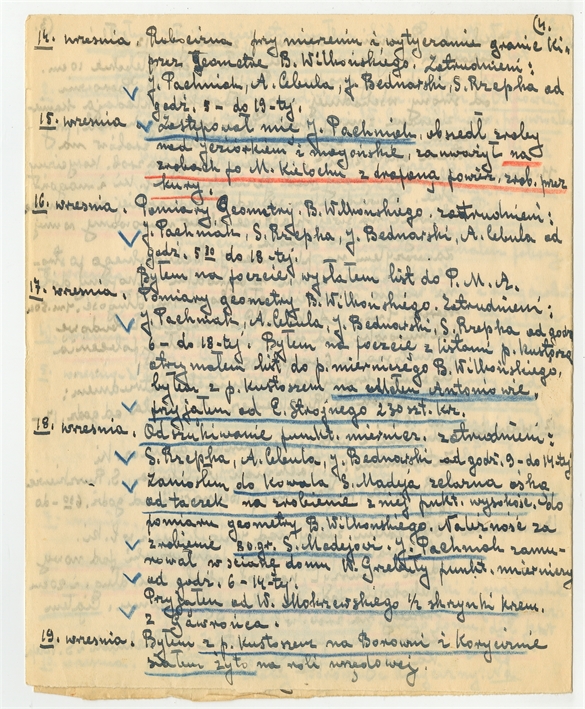 4.
14. września. Robocizna przy mierzeniu i wytyczanie granic Ki-
przez Geometrę B. Wilkońskiego. Zatrudnieni:
J. Pachniak, A. Cebula, J. Bednarski, S. Rzepka od
godz. 5- do 19-tej.
15. września Zastępował mię J. Pachniak, obszedł zroby
nad jeziorkiem i magońskie, zauważył na
zrobach po M. Kielochu zdrapaną powierz. zrob. przez
kury.
16. września. Pomiary Geometry. B. Wilkońskiego. zattrudnieni:
J. Pachniak, S. Rzepka, J. Bednarski, A. Cebula od
godz. 5 30 do 18-tej.
Byłem na poczcie, wysłałem list do P. M. A.
17. września. Pomiary geometry B. Wilkońskiego. Zatrudnieni:
J. Pachniak, A. Cebula, J. Bednarski, S. Rzepka od godz
6- do 18-tej. Byłem na poczcie z listami p. Kustosza
otrzymałem list do p. mierniczego B. Wilkońskiego,
byłem z p. Kustoszem na
przyjąłem od E. Strojnego 230 szt. krz.
18. września. Odszukiwanie punkt. miernicz. zatrudnieni:
S. Rzepka, A. Cebula, J. Bednarski od godz. 9- do 14-tej
Zaniosłem do Kowala S. Madeja żelazna ośkę
od taczek na zrobienie z niej punkt. wysokość. do
pomiaru geometry B. Wilkońskiego. Należność za
zrobienie 30 gr. S. Madejowi. J. Pachniak zamu-
rował w ścianę domu W. Grzelały punkt. mierniczy
od godz. 6-14-tej.
Przyjąłem od W. Mokrzewskiego 1/2 skrzynki krzem.
z Gawrońca.
19. września. Byłem z p. Kustoszem na Borowni i Korycienie
siałem żyto na roli urzędowej.